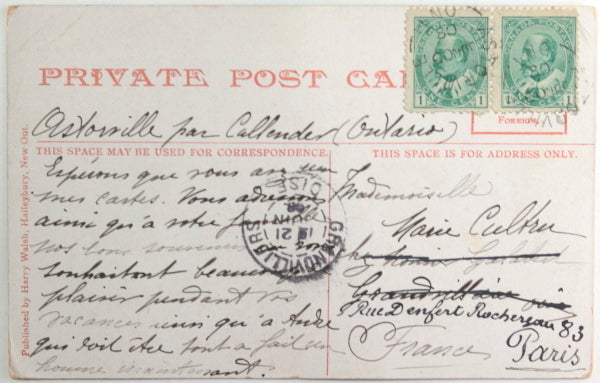 PRIVATE POST CA
CANADA POSTA
1
CANADA POSTA
1
FOREIGN.
Astorville par Callender (Ontario)
THIS SPACE MAY BE USED FOR CORRESPONDENCE.
THIS SPACE IS FOR ADDRESS ONLY.
Espérons que vous avez
mes cartes. Vous adressons
ainsi qu'à votre
nos bons souvenirs en vous
souhaitant beaucoup de
plaisir pendant vos
vacances ainsi qu'à André
qui doit être tout à fait un
homme maintenant.
GRANDVILLIERS
OISE
21
JUIN
08
Mademoiselle
Marie Cultru
chez
Grandvilliers Oise
Rue Denfert Rochereau 83
Paris
France
Published by Harry Walsh, Haileybury, New Ont.